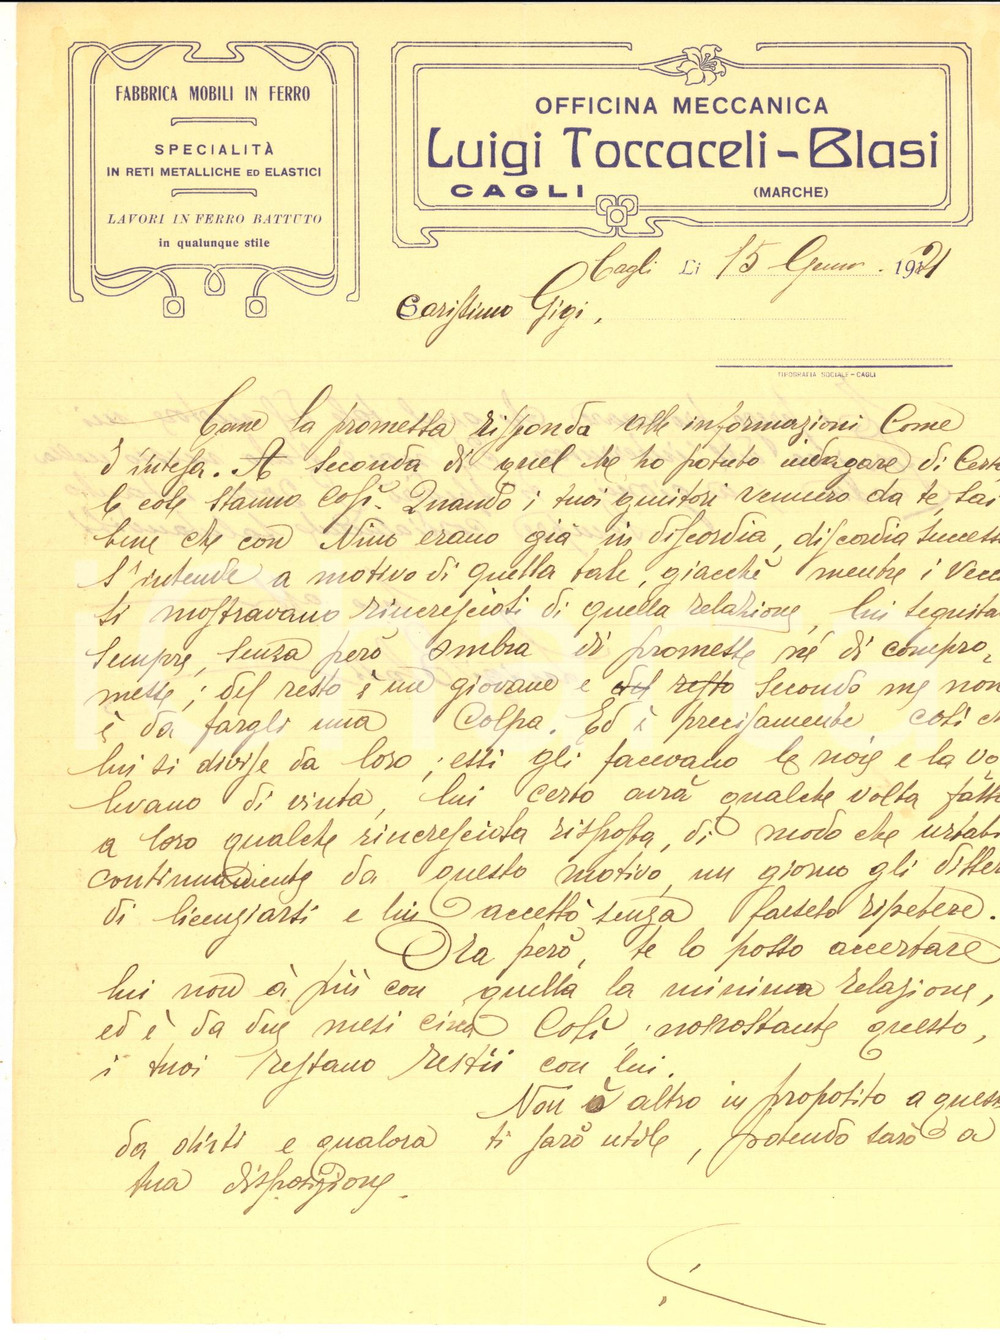 FABBRICA MOBILI IN FERRO
SPECIALITÀ
IN RETI METALLICHE ED ELASTICI
LAVORI IN FERRO BATTUTO
in qualunque stile
OFFICINA MECCANICA
Luigi Toccaceli-Blasi
CAGLI (MARCHE)
Cagli Li 15 Genn. 1921
Carissimo Gigi,
TIPOGRAFIA SOCIALE - CAGLI
Come la promessa rispondo alle informazioni Come
d'intesa. A seconda di quel che ho potuto indagare di Certo
le cose stanno così. Quando i tuoi genitori vennero da te, sai
bene che con Nino erano già in discordia, discordia success
s'intende a motivo di quella tale, giacchè mentre i Vecc
si mostravano rincresciosi di quella relazione, lui seguita
sempre, senza però ombra di promesse nè di compro-
messe; del resto è un giovane e del resto secondo me non
è da fargli una Colpa. Ed è precisamente così ch
lui si divise da loro; essi gli facevano le noie e la vo
levano di vinta, lui certo avrà qualche volta fatto
a loro qualche rincresciosa risposta, di modo che urtati
continuamente da questo motivo, un giorno gli disser
di licenziarsi e lui accettò senza farselo ripetere.
Ora però, te lo posso accertare
lui non à più con quella la minima relazione,
ed è da due mesi circa Così, nonostante questo,
i tuoi restano restii con lui.
Non è altro in proposito a quest
da dirti e qualora ti sarò utile, potendo sarò a
tua disposizione.